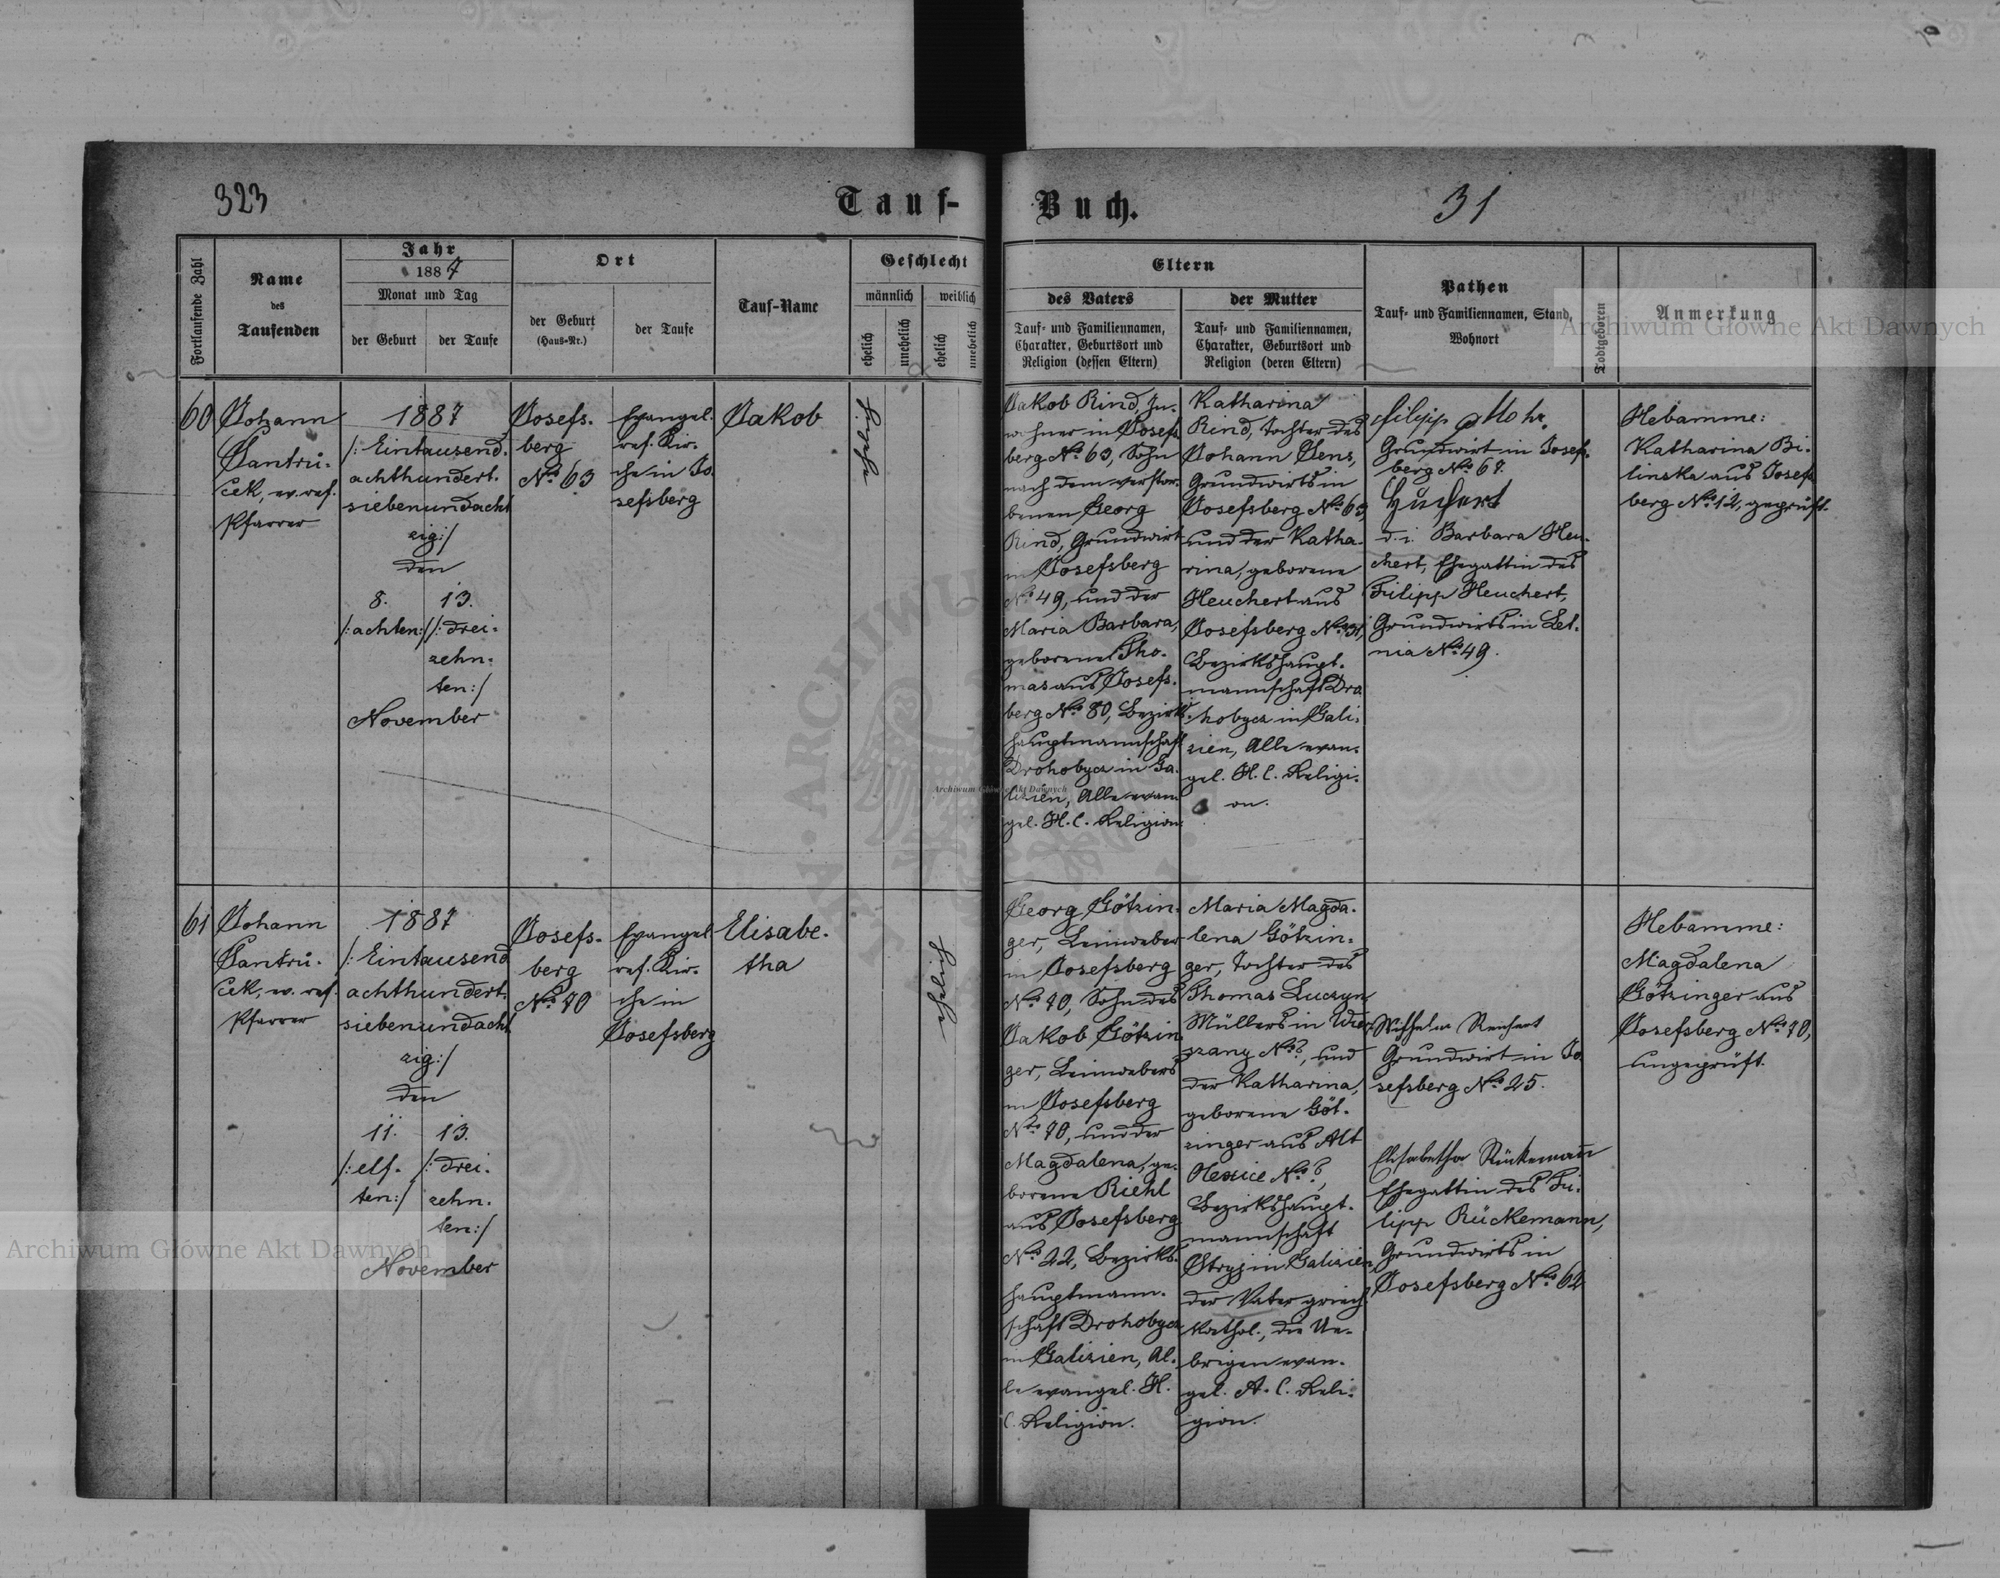 323
Tauf-
Buch.
31
Fortlaufende Zahl
Name
des
Taufenden
Jahr
1887
Monat und Tag
der Geburt
der Taufe
Ort
der Geburt
(Haus-Nr.)
der Taufe
Tauf-Name
Geschlecht
männlich
weiblich
ehelich
unehelich
ehelich
unehelich
Eltern
des Vaters
Tauf- und Familiennamen,
Charakter, Geburtsort und
Religion (dessen Eltern)
der Mutter
Tauf- und Familiennamen,
Charakter, Geburtsort und
Religion (deren Eltern)
Pathen
Tauf- und Familiennamen, Stand,
Wohnort
Todtgeboren
Anmerkung
60
Johann
Šantrů-
ček, ev. ref.
Pfarrer
1887
/: Eintausend-
achthundert-
siebenundacht
zig :/
den
8.
/: achten :/
13.
/: drei-
zehn-
ten :/
November
Josefs-
berg
No. 63
Evangel.
ref. Kir-
che in Jo
sefsberg
Jakob
ehelich
Jakob Rind, In-
wohner in Josefs
berg No. 63, Sohn
nach dem verstor-
benen Georg
Rind, Grundwirt
in Josefsberg
No. 49, und der
Maria Barbara,
geborene Tho-
mas aus Josefs-
berg No. 80, Bezirks
hauptmannschaft
Drohobycz in Ga-
lizien, Alle evan
gel. H. C. Religion
Katharina
Rind, Tochter des
Johann Jens,
Grundwirts in
Josefsberg No. 63,
und der Katha-
rina, geborene
Heuchert aus
Josefsberg No. 31,
Bezirkshaupt-
mannschaft Dro
hobycz in Gali-
zien, Alle evan-
gel. H. C. Religi-
on.
Filipp Mohr,
Grundwirt in Josefs-
berg No. 67.
d. i. Barbara Heu-
chert, Ehegattin des
Filipp Heuchert,
Grundwirts in Let-
nia No. 49.
Hebamme:
Katharina Bi-
linska aus Josefs
berg No. 12, geprüft.
61
Johann
Šantrů-
ček, ev. ref.
Pfarrer
1887
/: Eintausend
achthundert-
siebenundacht
zig :/
den
11.
/: elf-
ten :/
13.
/: drei-
zehn-
ten :/
November
Josefs-
berg
No. 70
Evangel
ref. Kir-
che in
Josefsberg
Elisabe-
tha
ehelich
Georg Götzin-
ger, Leinweber
in Josefsberg
No. 70, Sohn des
Jakob Götzin
ger, Leinwebers
in Josefsberg
No. 70, und der
Magdalena, ge-
borene Riehl
aus Josefsberg
No. 22, Bezirks-
hauptmann-
schaft Drohobycz
in Galizien, Al-
le evangel. H.
C. Religion.
Maria Magda-
lena Götzin-
ger, Tochter des
Thomas Luczyn
Müllers in
No. ?, und
der Katharina,
geborene Göt-
zinger aus Alt
Olexice No. ?,
Bezirkshaupt-
mannschaft
Stryj in Galizien,
der Vater griech.
kathol., die Ue-
brigen evan-
gel. A. C. Reli-
gion.
Wilhelm Reichert
Grundwirt in Jo
sefsberg No. 25.
Elisabetha Rückemann
Ehegattin des Fi-
lipp Rückemann,
Grundwirts in
Josefsberg No. 62
Hebamme:
Magdalena
Götzinger aus
Josefsberg No. 70,
ungeprüft.
Archiwum Główne Akt Dawnych
Archiwum Główne Akt Dawnych
Archiwum Główne Akt Dawnych